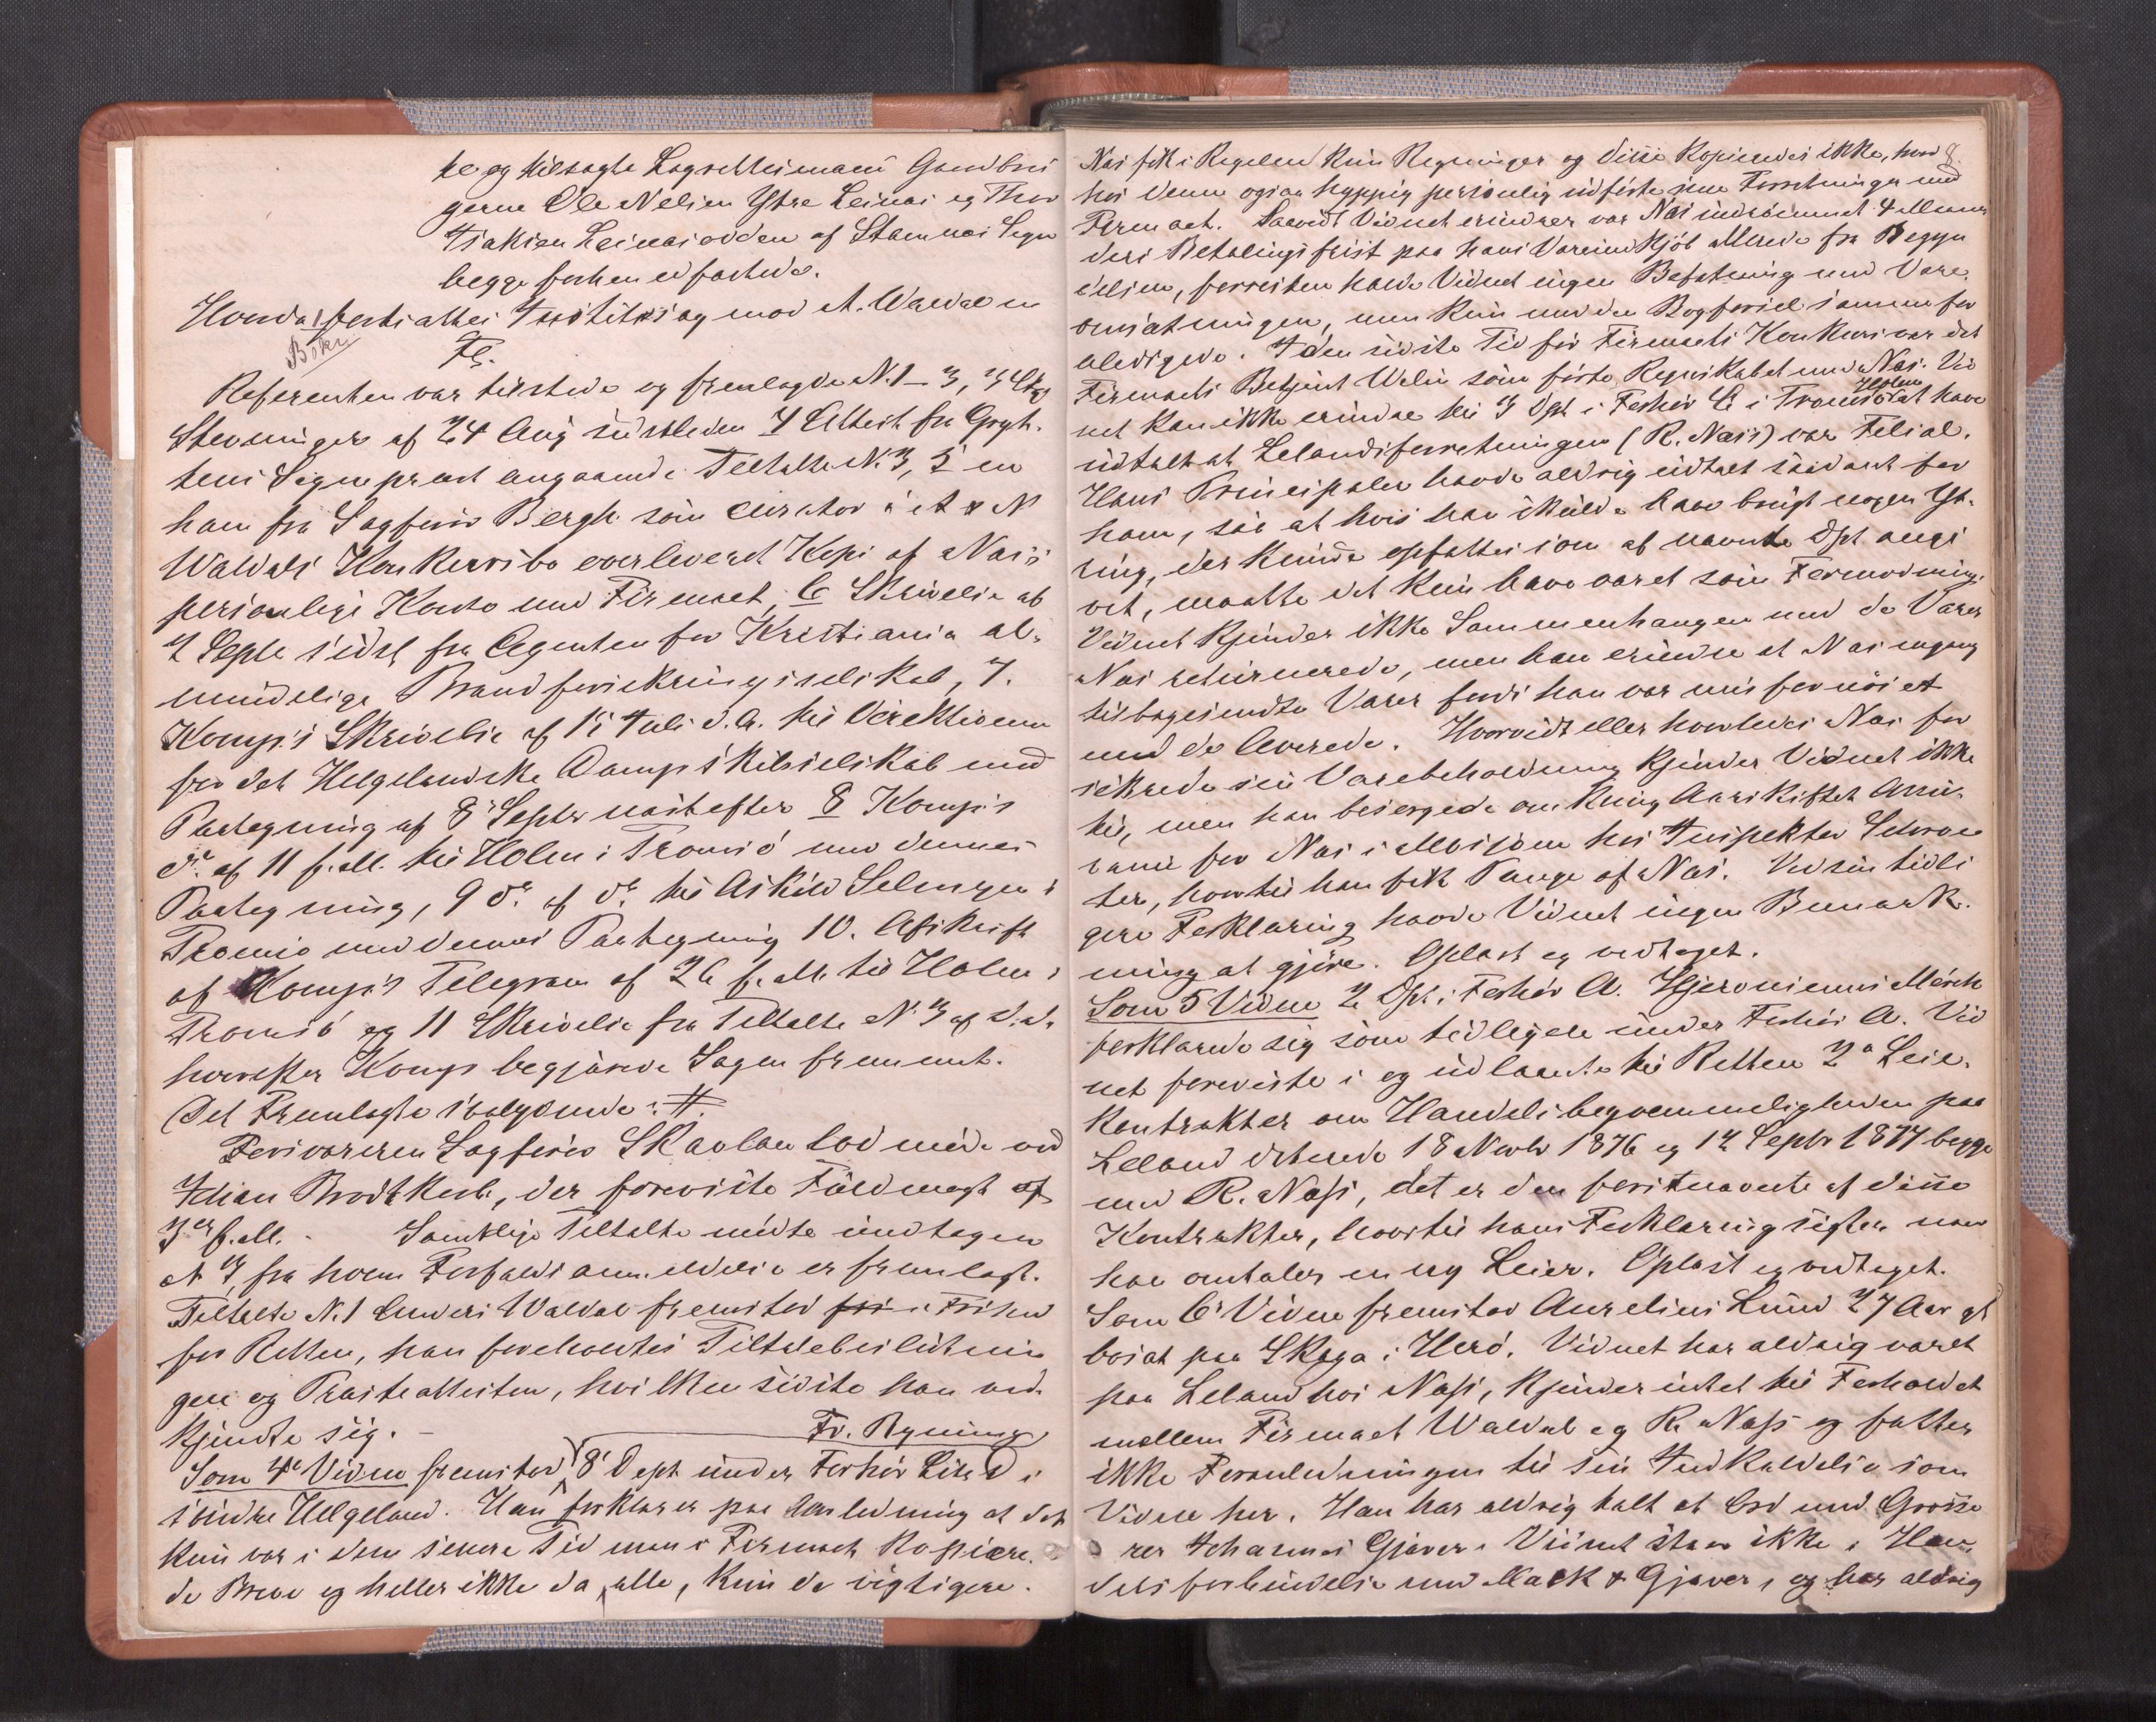 te og tilsagte Lagrettesmænd Gaardbru
gerne Ole Nelsen Ytre Leines og Thor
Isaksen Leinesodden af Stamnes Sogn
begge forhen edfæstede.
Hvorda foretattes Justitssag mod A. Waldal m
Bökr
Fl.
Referenten var tilstede og fremlagde N. 1 – 3,
Stevninger af 24 Aug sidstleden 4 Attest fra
tens Sogneprest angaaende Tiltalte N. 3, 5 en
ham fra Sagförer Bergh som Curator i A & N
Waldals Konkursbo overleveret Kopi af Næss's
personlige Konto med Firmaet, 6 Skrivelse af
7 Septe sidst fra Agenten for Kristiania al-
mindelige Brandforsikringsselskab, 7.
Komp's Skrivelse af 15 Juli d. A. til Direktionen
for det Helgelandske Dampskibsselskab med
Paategning af 8 Septbr næstefter 8 Komp's
do. af 11 f. M. til Holm i Tromsö med dennes
Paategning, 9 do. af do. til Askild Selmer i
Tromsö med dennes Paategning 10. Afskrift
af Komp's Telegram af 26 f. M. til Holm i
Tromsö og 11 Skrivelse fra Tiltalte N. 3 af d. D.
hvorefter Komp begjærede Sagen fremmet.
Det Fremlagte ivalydende: #.
Forsvareren Sagförer Skavlan lod möde ved
Brodtkorb, der foreviste Fuldmagt af
3de f. M. – Samtlige Tiltalte mödte undtagen
N 3 fra hvem Forfaldsanmeldelse er fremlagt.
Tiltalte N. 1 Anders Waldal fremstod i Frihed
for Retten, han foreholdtes Tiltalebeslutnin
gen og Præsteattesten, hvilken sidste han ved
kjendte sig. –
Fr. Ryning
Som 4de Vidne fremstod 8 Dept under Forhör Litr D i
söndre Helgeland. Han forklarer paa Anledning at det
kun var i den senere Tid man i Firmaet Kopiere-
de Breve og heller ikke da alle, kun de vigtigere.
8
Næs fik i Regelen kun Regninger og disse Kopieredes ikke, hvor
hos denne ogsaa hyppig personlig udförte sine Forretninger med
Firmaet. Saavidt Vidnet erindrer var Næs indrömmet 4 Maane
ders Betalingsfrist paa hans Vareindkjöb allerede fra Begyn
delsen, forresten havde Vidnet ingen Befatning med Vare-
omsætningen, men kun med den Bogförsel sammesteds
. I den sidste Tid för Firmaets Konkurs var det
Firmaets Betjent Welin som förte Regnskabet med Næs. Vid
net kan ikke erindre til 3 Dpt i Forhör C i Tromsö Holm at have
udtalt at Lelandsforretningen (R. Næss) var Filial.
Hans Principaler havde aldrig udtalt saadant for
ham, saa at hvis han skulde have brugt nogen Yt-
ring, der kunde opfattes som af nævnte Dpt angi
vet, maatte det kun have været som Formodning.
Vidnet kjender ikke Sammenhængen med de Varer
Næs returnerede, men kan erindre at Næs engang
tilbagesendte Varer fordi han var misfornöiet
med de leverede. Hvorvidt eller hvorledes Næs for
sikrede sin Varebeholdning kjender Vidnet ikke
til, men han besörgede omkring Aarskiftet Assu-
rance for Næs i Mosjöen hos Inspektör Schrö
ter, hvortil han fik Penge af Næs. Ved sin tidli
gere Forklaring havde Vidnet ingen Bemærk-
ning at gjöre. Oplæst og vedtaget.
Som 5 Vidne 2 Dpt i Forhör A. Hjeronimus Mörch
forklarede sig som tidligere under Forhör A. Vid
net foreviste i og udlaante til Retten 2de Leie-
kontrakter om Handelsbeqvemmeligheden paa
Leland daterede 18 Novbr 1876 og 12 Septbr 1877 begge
med R. Næss, det er den förstnævnte af disse
Kontrakter, hvortil hans Forklaring sigter naar
han omtaler en ny Leier. Oplæst og vedtaget.
Som 6te Vidne fremstod Aurelius Lund 27 Aar gl
bosat paa Skaga i Herö. Vidnet har aldrig været
paa Leland hos Næss, kjender intet til Forholdet
mellem Firmaet Waldal og R. Næss og fatter
ikke Foranledningen til sin Indkaldelse som
Vidne her. Han har aldrig talt et Ord med Grosse
rer Johannes Gjæver. Vidnet staar ikke i Han-
delsforbindelse med Mack & Gjæver, og har aldrig